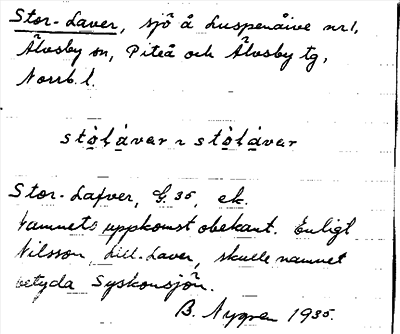 Stor-Laver, sjö å Luspenåive nr 1,
Älvsby sn, Piteå och Älvsby tg,
Norrb. l.
stòlávar ~ stòlávar
Stor-Lafver, G. 35, ek.
Namnets uppkomst obekant. Enligt
Nilsson, Lill-Laver, skulle namnet
betyda Syskonsjön.
B. Nygren 1935.